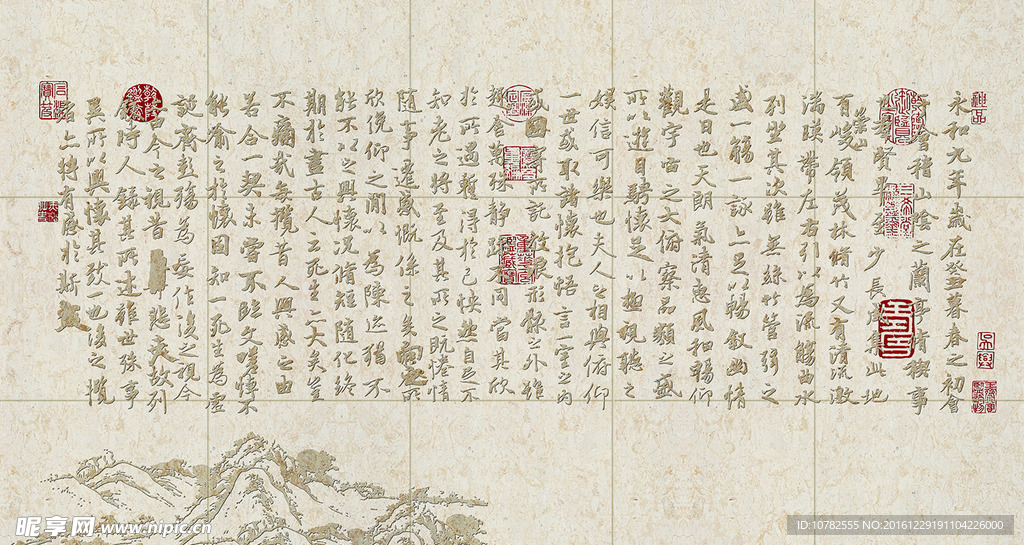 永和九年歲在癸丑暮春之初會
于會稽山陰之蘭亭脩稧事
也群賢畢至少長咸集此地
有崇山峻領茂林脩竹又有清流激
湍暎帶左右引以為流觴曲水
列坐其次雖無絲竹管弦之
盛一觴一詠亦足以暢敘幽情
是日也天朗氣清惠風和暢仰
觀宇宙之大俯察品類之盛
所以遊目騁懷足以極視聽之
娛信可樂也夫人之相與俯仰
一世或取諸懷抱悟言一室之內
或因寄所託放浪形骸之外雖
趣舍萬殊靜躁不同當其欣
於所遇蹔得於己怏然自足不
知老之將至及其所之既惓情
隨事遷感慨係之矣向之所
欣俛仰之閒以為陳迹猶不
能不以之興懷況脩短隨化終
期於盡古人云死生亦大矣豈
不痛哉每攬昔人興感之由
若合一契未嘗不臨文嗟悼不
能喻之於懷固知一死生為虛
誕齊彭殤為妄作後之視今
亦由今之視昔悲夫故列
敘時人錄其所述雖世殊事
異所以興懷其致一也後之攬
者亦將有感於斯文
昵享网 www.nipic.cn
ID:10782555 NO:20161229191104226000